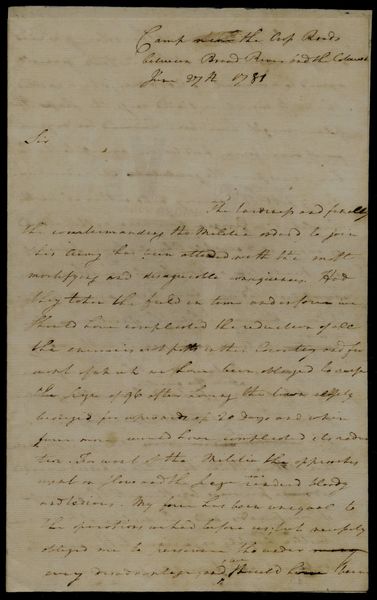 Camp near the Cross Roads
between Broad River and the Catawba
June 27th 1781
Sir
The tardiness and finally
the countermanding the Militia orderd to join
this army has been attended with the most
mortifying and disagreeable consequences. Had
they taken the field in time and in force we
should have compleated the reduction of all
the enemies out posts in this Country and for
want of which we have been obliged to raise
the siege of 96 after having the town closely
besieged for upwards of 20 days and when
four more would have compleated its reduc
tion. For want of the Militia the approaches
went on slow and the siege renderd bloody
and tedious. My force has been unequal to
the operations we had before us, but necessity
obliged me to persevere tho under
every disadvantage, and should have